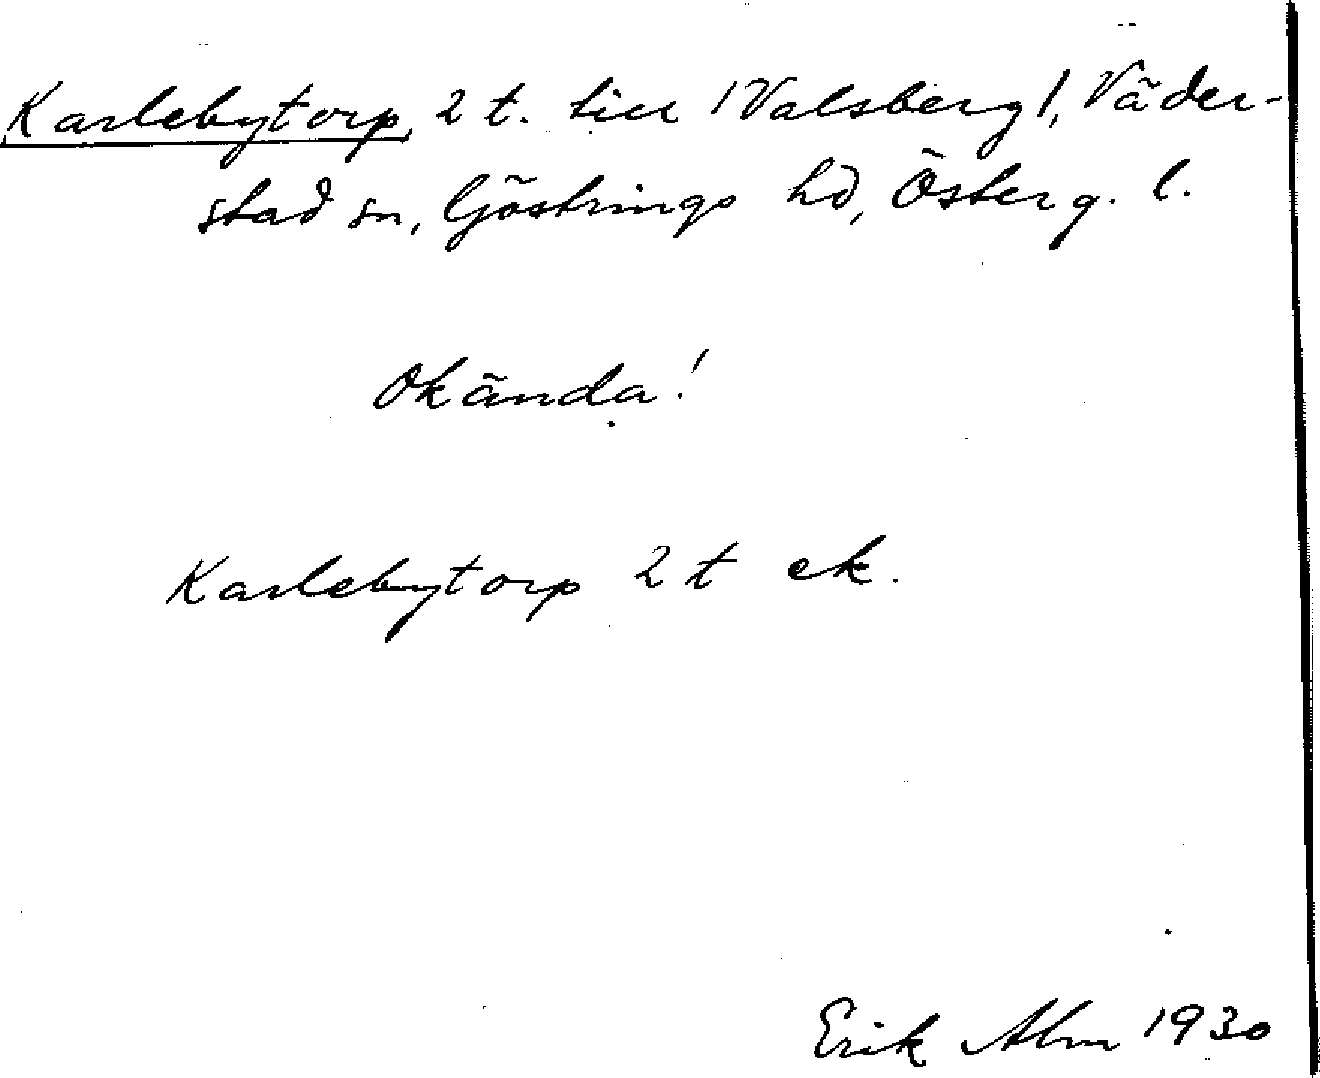 Karlebytorp, 2 t. till /Valsberg/, Väder-
stad sn, Göstrings hd, Österg. l.
Okända!
Karlebytorp 2 t ek.
Erik Alm 1930